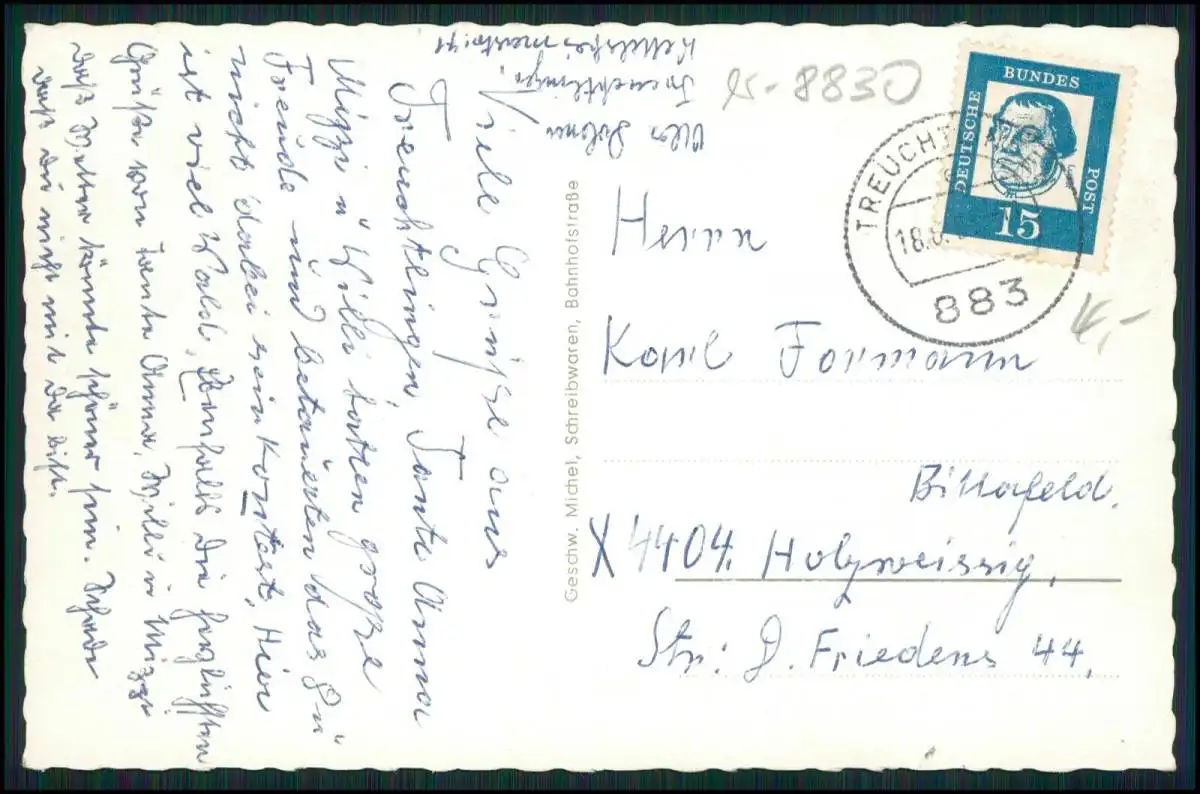 Viele Grüße aus
Treuchtlingen, Tante Anna
Mizzi u Willi hatten große
Freude und betauerten das Du
nicht dabei sein konntest, Hier
ist viel Wald, Ebenfalls die herzlichsten
Grüße von Tante Anna, Willi u Mizzi
daß Wetter könnte schöner sein. Schade
daß du nicht mit da bist.
Treuchtlingen,
Geschw. Michel, Schreibwaren, Bahnhofstraße
8830
DEUTSCHE BUNDES POST
15
TREUCHT
18.8.
883
Herrn
Karl Formann
Bitterfeld.
X 4404. Holzweissig,
Str: d. Friedens 44,